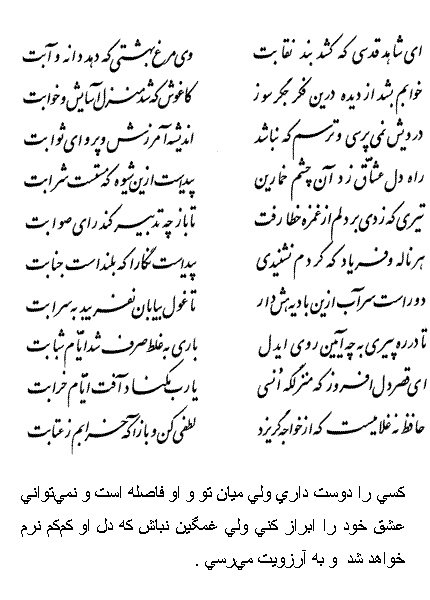 ای شاهد قدسی که کشد بند نقابت وی مرغ بهشتی که دهد دانه و آبت
خوابم بشد از دیده درین فکر جگر سوز کاغوش که شد منزل آسایش و خوابت
درویش نمی‌پرسی و ترسم که نباشد اندیشه آمرزش و پروای ثوابت
راه دل عشاق زد آن چشم خمارین پیداست ازین شیوه که مستست شرابت
تیری که زدی بر دلم از غمزه خطا رفت تا باز چه تدبیر کند رای صوابت
هر ناله و فریاد که کردم نشنیدی پیداست نگارا که بلند است جنابت
دور است سر آب ازین بادیه هش دار تا غول بیابان نفریبد به سرابت
تا در ره پیری به چه آیین روی ایدل باری به غلط صرف شد ایّام شبابت
ای قصر دل افروز که منزلگه اُنسی یا رب مکناد آفت ایّام خرابت
حافظ نه غلامیست که از خواجه گریزد لطفی کن و بازآ که خرابم ز عتابت
کسي را دوست داري ولي ميان تو و او فاصله است و نمي‌تواني
عشق خود را ابراز کني ولي غمگين نباش که دل او کم‌کم نرم
خواهد شد و به آرزويت مي‌رسي .